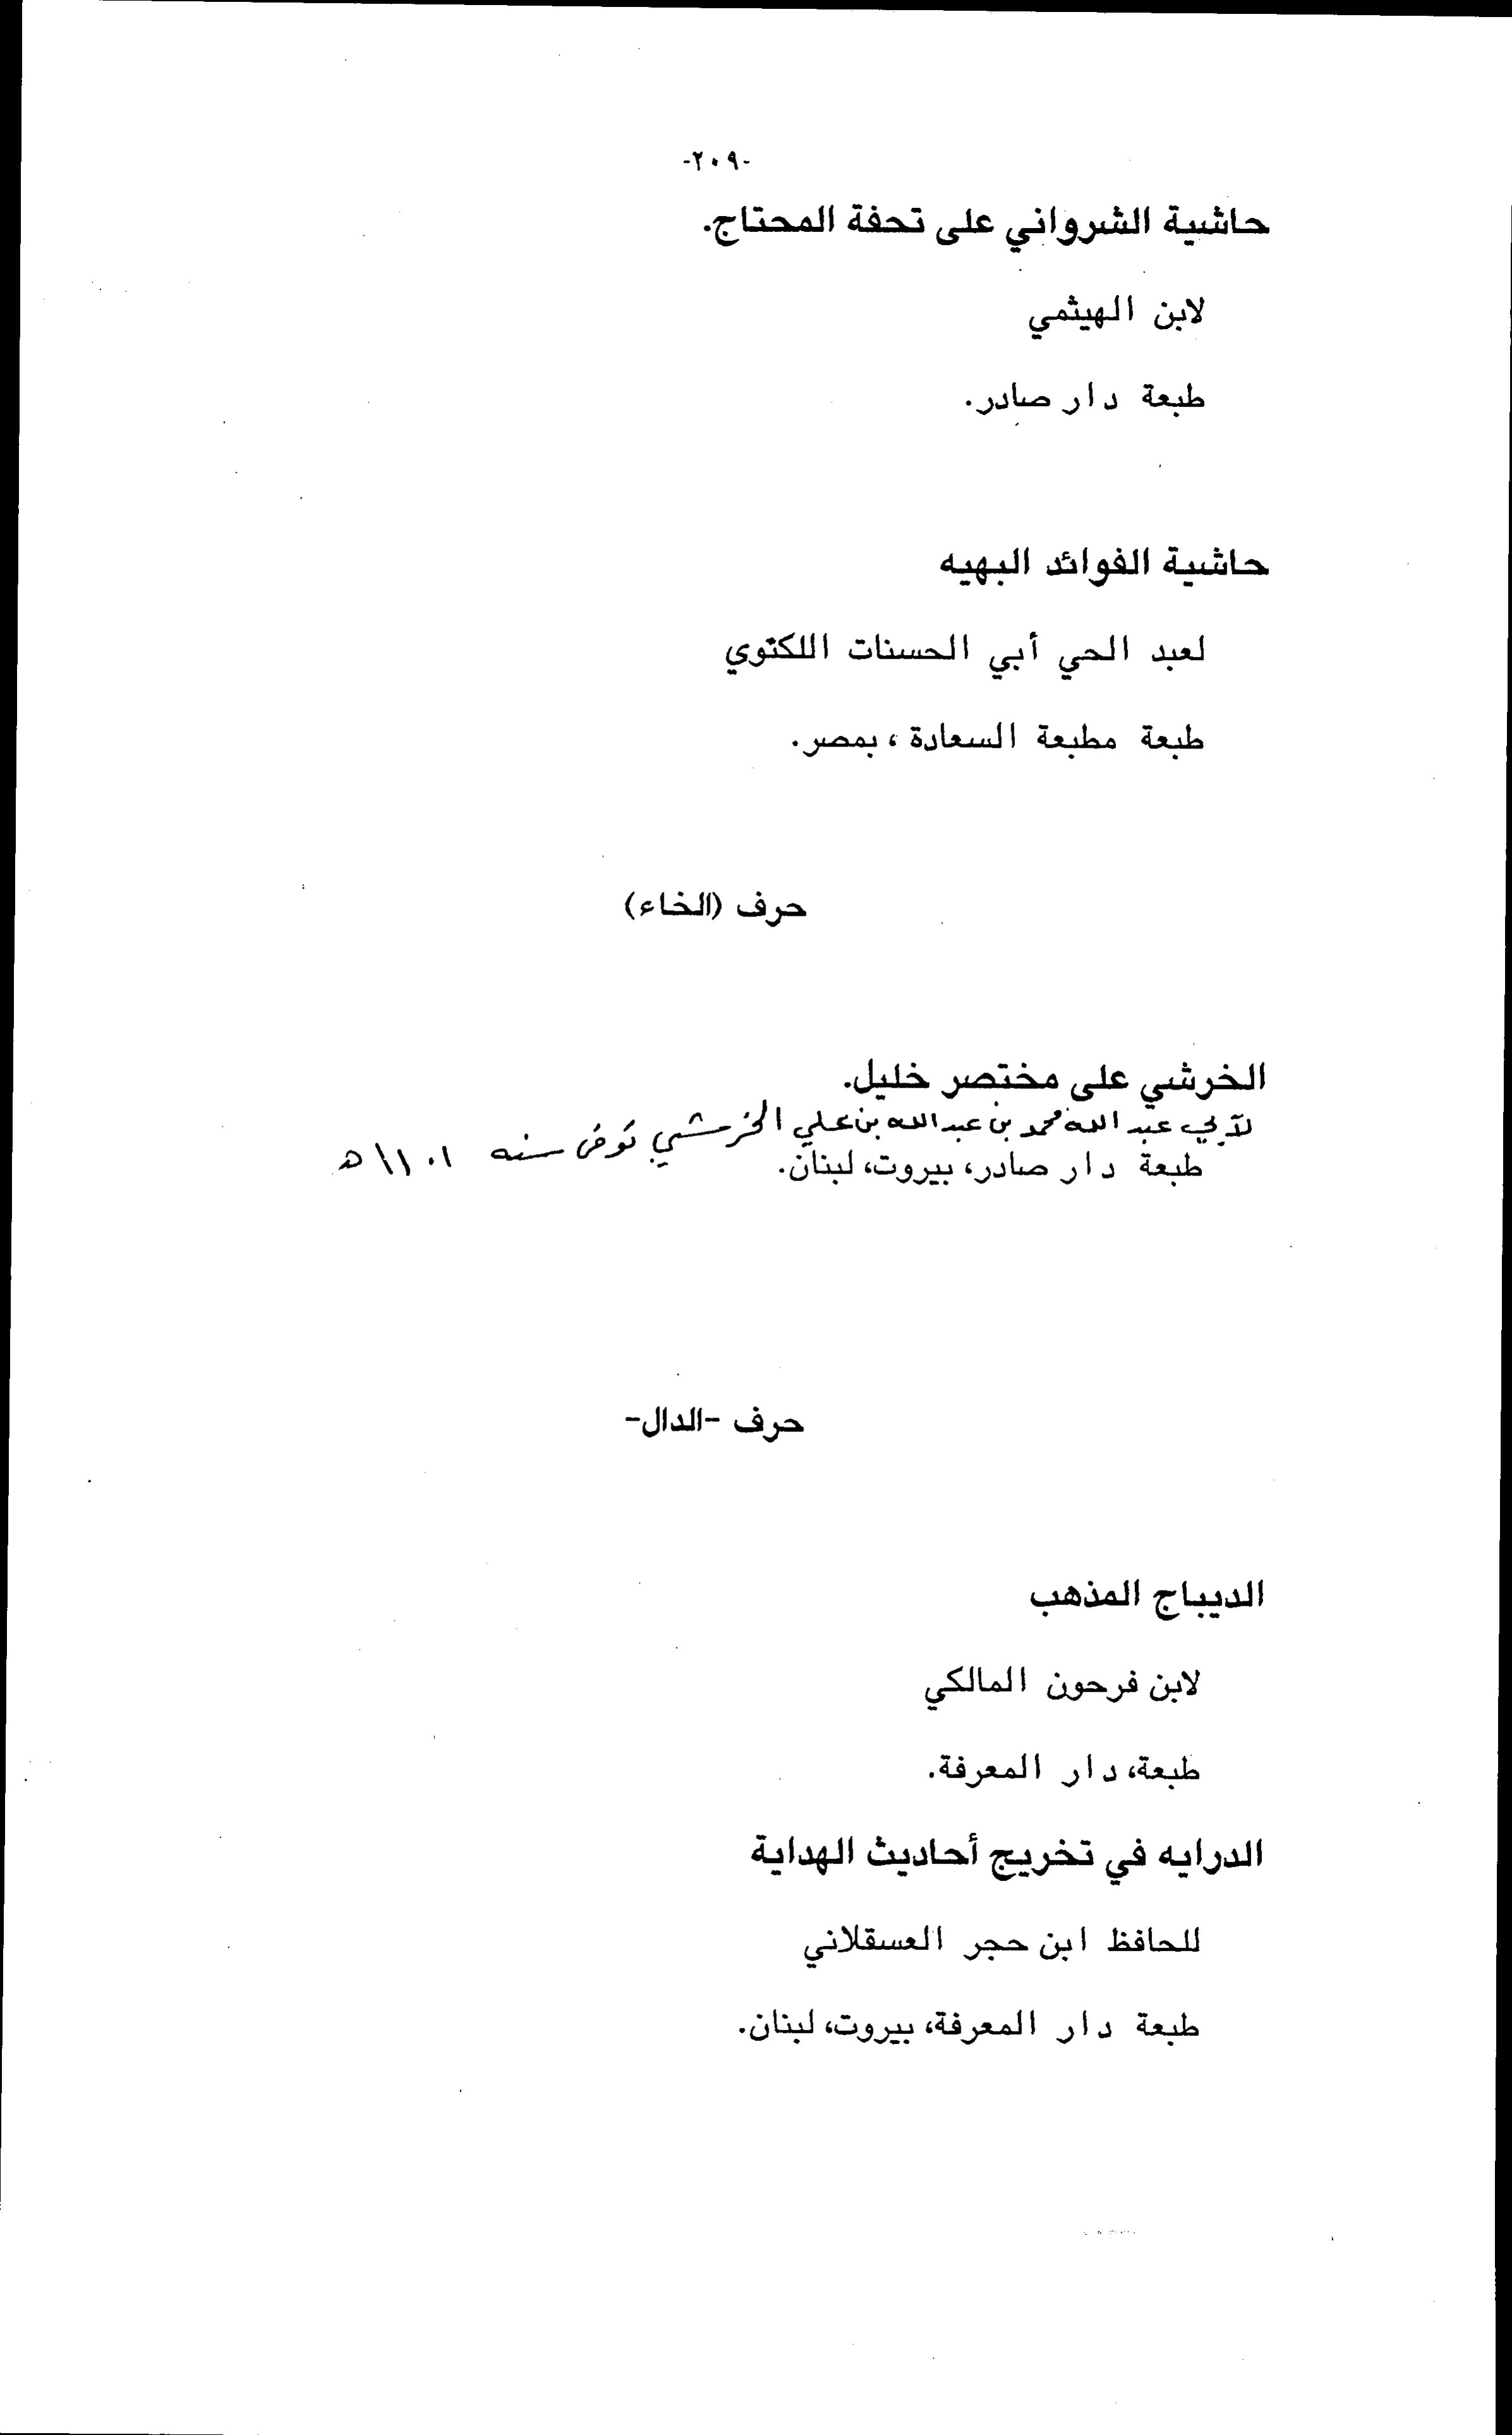 -٢٠٩-
حاشية الشرواني على تحفة المحتاج.
لابن الهيثمي
طبعة دار صادر.
حاشية الفوائد البهيه
لعبد الحي أبي الحسنات اللكتوي
طبعة مطبعة السعادة ، بمصر.
حرف (الخاء)
الخرشي على مختصر خليل.
لأبي عبد الله محمد بن عبد الله بن علي الخرشي توفى سنه ١١٠١ هـ
طبعة دار صادر، بيروت، لبنان.
حرف -الدال-
الديباج المذهب
لابن فرحون المالكي
طبعة، دار المعرفة.
الدرايه في تخريج أحاديث الهداية
للحافظ ابن حجر العسقلاني
طبعة دار المعرفة، بيروت، لبنان.